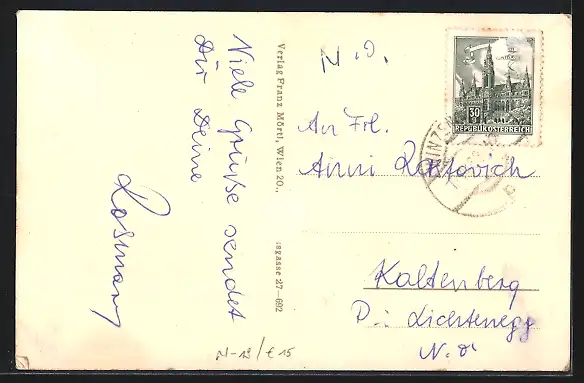 Viele Grüße sendet
Dir Deine
Rosmary
Verlag Franz Mörtl, Wien 20.,
gasse 27-692
N.Ö.
An Frl.
Anni
Kaltenberg
P.: Lichtenegg
N.Ö.
30
REPUBLIK ÖSTERREICH
N-19/€15